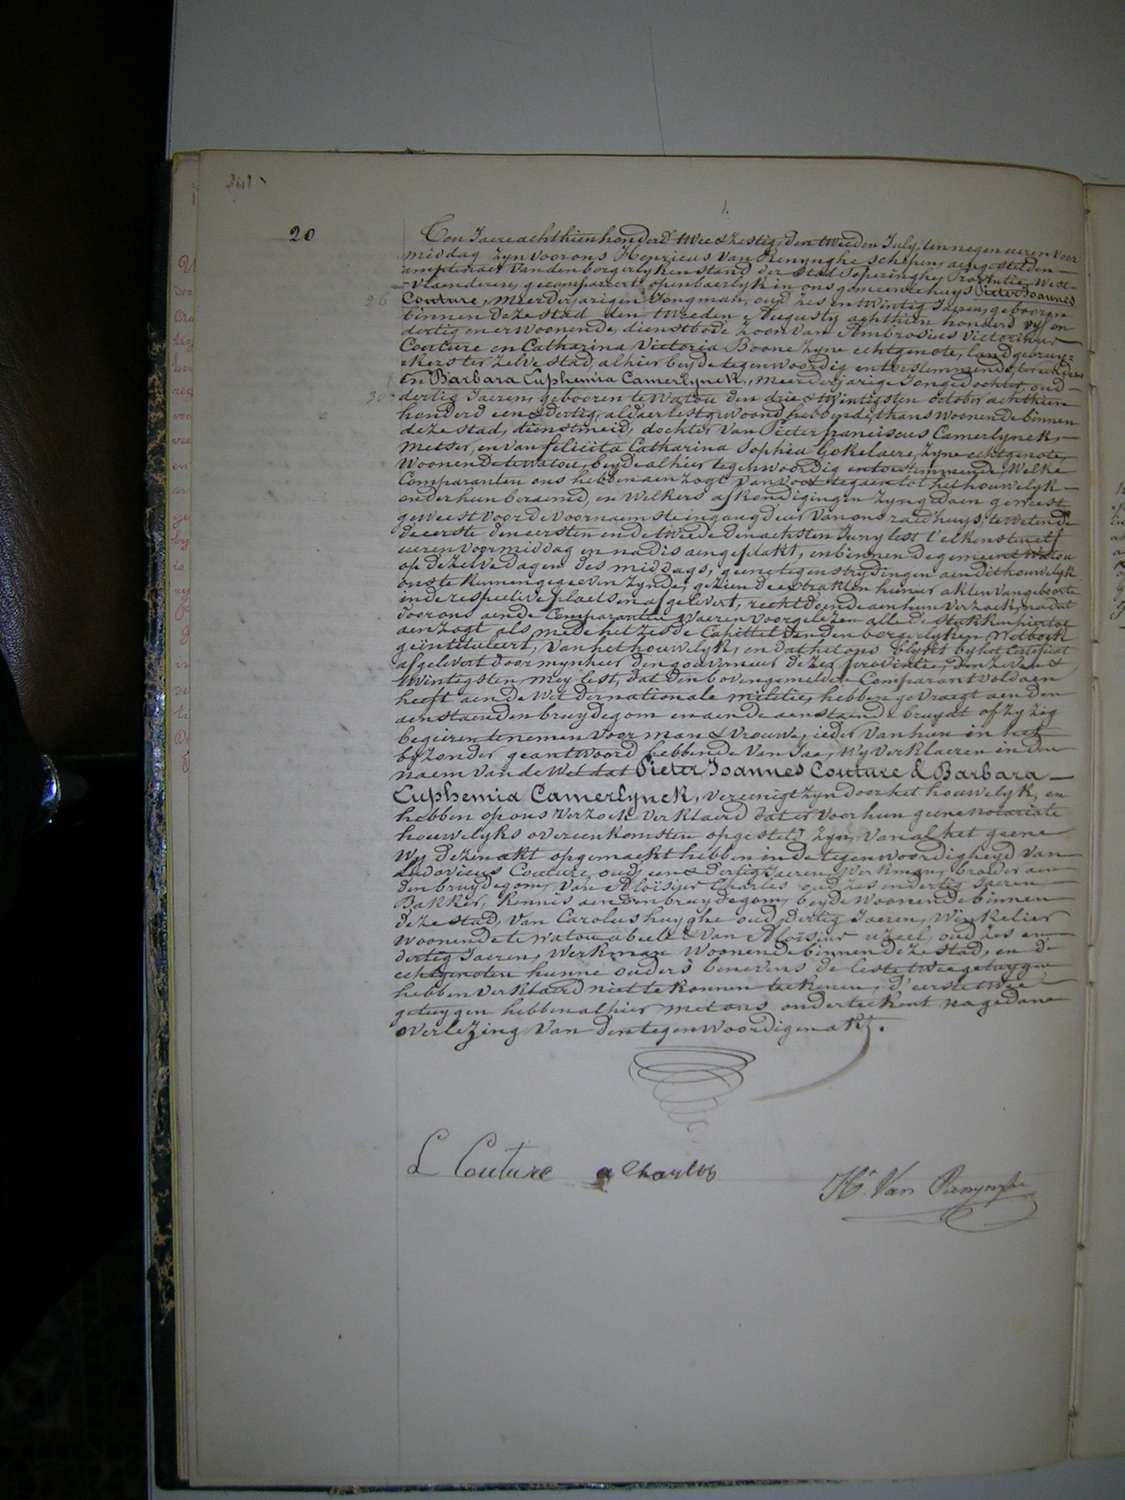 20
Ten Jaere achthien honderd twee & Zestig, den tweeden July, ten negen ueren voor
middag Zyn voor ons Henricus Van Renynghe schepen, aengestelden
ampténaer van den borgerlyken stand der stad Poperinghe, Provintie West
Vlaenderen, gecompareert openbaerlyk in ons gemeentehuys Pieter Joannes
26 Couture, meerderjarigen Jongman, oud zes en twintig Jaeren, geboren
binnen deze stad den tweeden Augusty achthien honderd vyf en
dertig en er woonende, dienstbode zoon van Ambrosius Victorinus
Couture en Catharina Victoria Boone zyne echtgenote, landgebruy-
kers ter zelve stad, alhier beyde tegenwoordig en toestemmende, ter eendere
30 en Barbara Euphemia Camerlynck, meerderjarige Jonge dochter, oud
dertig Jaeren, gebooren te Watou den drie & twintigsten october achthien
honderd een & dertig, aldaer lest gewoond hebbende, thans woonende binnen
deze stad, dienstmeid, dochter van Pieter franciscus Camerlynck,
metser, en van felicita Catharina Sophia Gokelaere, zyne echtgenote,
woonende te watou, beyde alhier tegenwoordig en toestemmende, Welke
Comparanten ons hebben aenzogt van voor tegaen tot het houwelyk
onder hun beraemd, en Welkers afkondigingen zyn gedaen geweest
geweest voor de voornaemste ingang deur van ons raedhuys, te weten de
de eerste den eersten en de tweede den achsten Juny lest t'elkens ten elf
ueren voormiddag en nadis aengeplakt, en binnen de gemeente Watou
op de zelve dagen des middags, geene tegenstrydingen aen dit houwelyk
ons te kennen gegeeven zynde, gezien de extrakten hunner akten van geboorte
in de respective plaetsen afgelevert, recht doende aen hun verzoek, nadat
door ons aen de Comparanten waeren voorgelezen alle de stukken hiertoe
aenzogt als mede het zesde Capittel van den borgerlyken Wetboek
geïntituleert, Van het houwelyk, en dat het ons blykt by het Certificaet
afgelevert door mynheer den gouverneur dezer provintie, den zeven &
twintigsten mey lest, dat den bovengemelden Comparant voldaen
heeft aen de Wet der nationale militie, hebben gevraegt aen den
aenstaenden bruydegom en aen de aenstaende bruydt of zy zig
begeiren te nemen voor man & vrouwe, ieder van hun in het
byzonder geantwoord hebbende Van Jae, Wy verklaeren in den
naem van de Wet dat Pieter Joannes Couture & Barbara
Euphemia Camerlynck, vereenigt zyn door het houwelyk, en
hebben op ons verzoek verklaerd dat er voor hun geene notariale
houwelyks overeenkomsten opgesteld zyn, van al het geene
Wy dezen akt opgemaekt hebben in de tegenwoordigheyd van
Ludovicus Couture, oud een & dertig Jaeren, Werkman, broeder aen
den bruydegom, van Aloisius Charles oud zes en dertig Jaeren
Bakker, kennis aen den bruydegom, beyde woonende binnen
deze stad, van Carolus huyghe oud dertig Jaeren, Winkelier
woonende te Watou abeele & van Aloïsius ureel, oud zes en
dertig Jaeren, Werkman Woonende binnen deze stad, en de
echtgenoten hunne ouders benevens de leste twee getuygen
hebben verklaerd niet te konnen teekenen, d'eerste twee
getuygen hebben alhier met ons onderteekent na gedane
overlezing van den tegenwoordigen akt.
L Couture a Charles
He. Van Renynghe